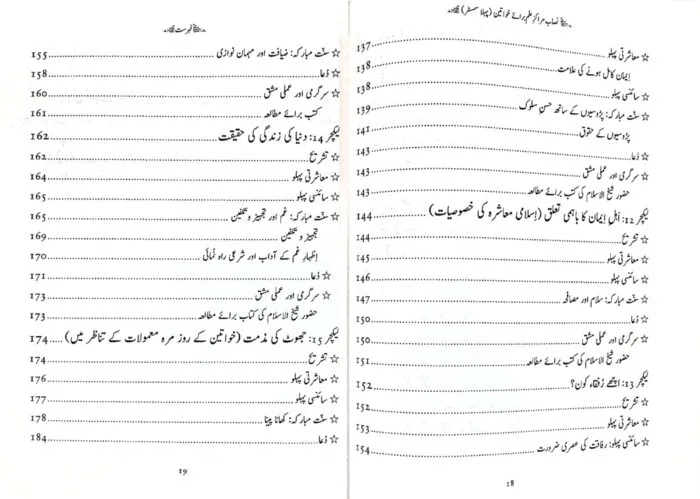 نصاب مراکزِ علم برائے خواتین (پہلا سمسٹر)
☆ معاشرتی پہلو 137
ایمان کامل ہونے کی علامت 138
☆ سائنسی پہلو 138
☆ سنّت مبارکہ: پڑوسیوں کے ساتھ حسنِ سلوک 139
پڑوسیوں کے حقوق 141
☆ دُعا 143
☆ سرگرمی اور عملی مشق 143
حضور شیخ الاسلام کی کتب برائے مطالعہ 143
لیکچر 12: اہلِ ایمان کا باہمی تعلق (اسلامی معاشرہ کی خصوصیات) 144
☆ تشریح 144
☆ معاشرتی پہلو 145
☆ سائنسی پہلو 146
☆ سنّت مبارکہ: سلام اور مصافحہ 147
☆ دُعا 150
☆ سرگرمی اور عملی مشق 150
حضور شیخ الاسلام کی کتب برائے مطالعہ 151
لیکچر 13: اچھے رُفقاء کون؟ 152
☆ تشریح 152
☆ معاشرتی پہلو 153
☆ سائنسی پہلو: رفاقت کی عصری ضرورت 154
18
فہرست
☆ سنّت مبارکہ: ضیافت اور مہمان نوازی 155
☆ دُعا 158
☆ سرگرمی اور عملی مشق 160
کتب برائے مطالعہ 161
لیکچر 14: دنیا کی زندگی کی حقیقت 162
☆ تشریح 162
☆ معاشرتی پہلو 164
☆ سائنسی پہلو 165
☆ سنّت مبارکہ: غم اور تجہیز و تکفین 165
تجہیز و تکفین 169
اِظہارِ غم کے آداب اور شرعی راہ نُمائی 170
☆ دُعا 171
☆ سرگرمی اور عملی مشق 173
حضور شیخ الاسلام کی کتاب برائے مطالعہ 173
لیکچر 15: جھوٹ کی مذمت (خواتین کے روز مرہ معمولات کے تناظر میں) 174
☆ تشریح 174
☆ معاشرتی پہلو 176
☆ سائنسی پہلو 177
☆ سنّت مبارکہ: کھانا پینا 178
☆ دُعا 184
19